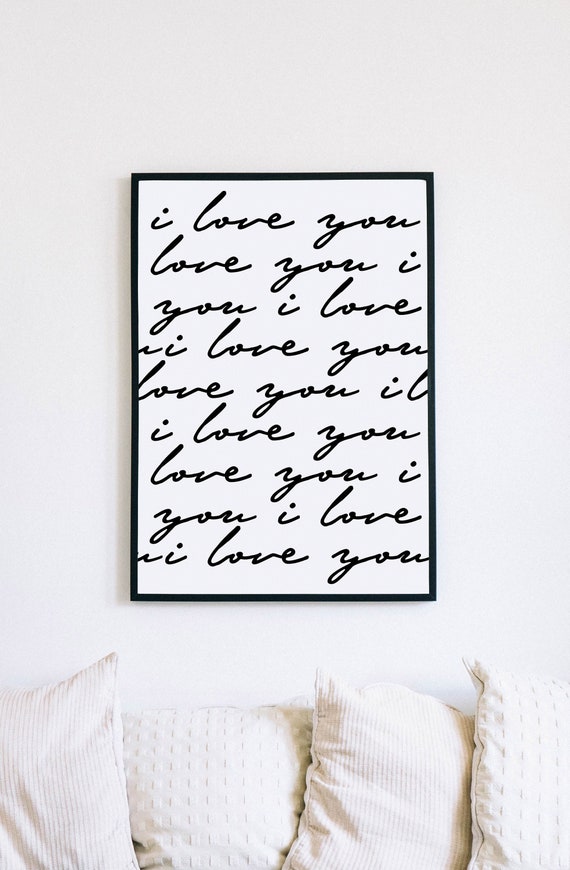 i love you
love you i
you i love
ui love you
love you il
i love you
love you i
you i love
ui love you